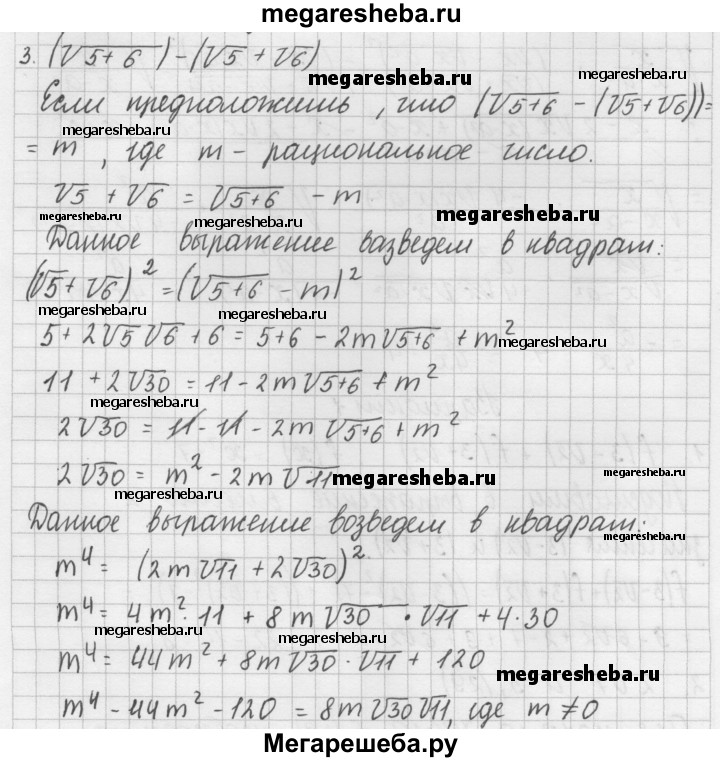 megaresheba.ru
3. (√5+6) - (√5 + √6)
megaresheba.ru
megaresheba.ru
Если предположить, что (√5+6 - (√5+√6)) =
megaresheba.ru
= m, где m - рациональное число.
√5 + √6 = √5+6 - m
megaresheba.ru megaresheba.ru megaresheba.ru
Данное выражение возведем в квадрат:
(√5+ √6)² = (√5+6 - m)²
megaresheba.ru megaresheba.ru
5 + 2√5√6 + 6 = 5+6 - 2m√5+6 + m²
megaresheba.ru
11 + 2√30 = 11 - 2m√5+6 + m²
megaresheba.ru
2√30 = 11 - 11 - 2m√5+6 + m²
2√30 = m² - 2m√11
megaresheba.ru
megaresheba.ru
megaresheba.ru
Данное выражение возведем в квадрат:
megaresheba.ru
m⁴ = (2m√11 + 2√30)²
m⁴ = 4m² · 11 + 8m√30 · √11 + 4·30
megaresheba.ru megaresheba.ru
m⁴ = 44m² + 8m√30 · √11 + 120
megaresheba.ru
m⁴ - 44m² - 120 = 8m√30√11, где m ≠ 0
Мегарешеба.ру